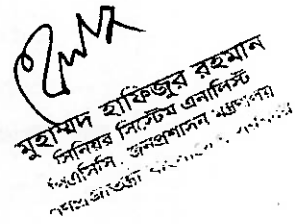 মুহাম্মদ হাফিজুর রহমান
সিনিয়র সিস্টেম এনালিস্ট
পিএসিসি, জনপ্রশাসন মন্ত্রণালয়
গণপ্রজাতন্ত্রী